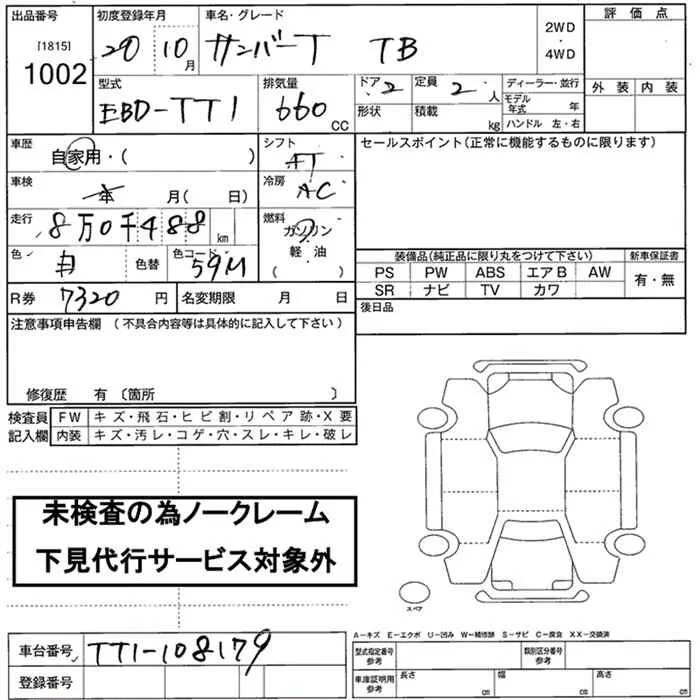 出品番号
[1815]
1002
初度登録年月
20 10月
車名・グレード
サンバーT TB
2WD
・
4WD
評価点
外装 内装
型式
EBD-TT1
排気量
660 CC
ドア 2
定員 2人
形状
積載 kg
ディーラー・並行
モデル年式 年
ハンドル 左・右
車歴
自家用・( )
シフト
AT
車検
年 月( 日)
冷房
AC
走行
8万0千488 km
燃料
ガソリン
軽・油
( )
色
白
色替
色コード
59M
R券 7320 円
名変期限 月 日
セールスポイント(正常に機能するものに限ります)
装備品(純正品に限り丸をつけて下さい)
新車保証書
PS PW ABS エアB AW
SR ナビ TV カワ
有・無
後日品
注意事項申告欄 (不具合内容等は具体的に記入して下さい)
修復歴 有 〔箇所 〕
検査員
記入欄
FW キズ・飛石・ヒビ割・リペア跡・X要
内装 キズ・汚レ・コゲ・穴・スレ・キレ・破レ
未検査の為ノークレーム
下見代行サービス対象外
スペア
A-キズ E-エクボ U-凹み W-補修跡 S-サビ C-腐食 XX-交換済
車台番号 TT1-108179
登録番号
型式指定番号
参考
類別区分番号
参考
車庫証明用
参考
長さ cm
幅 cm
高さ cm